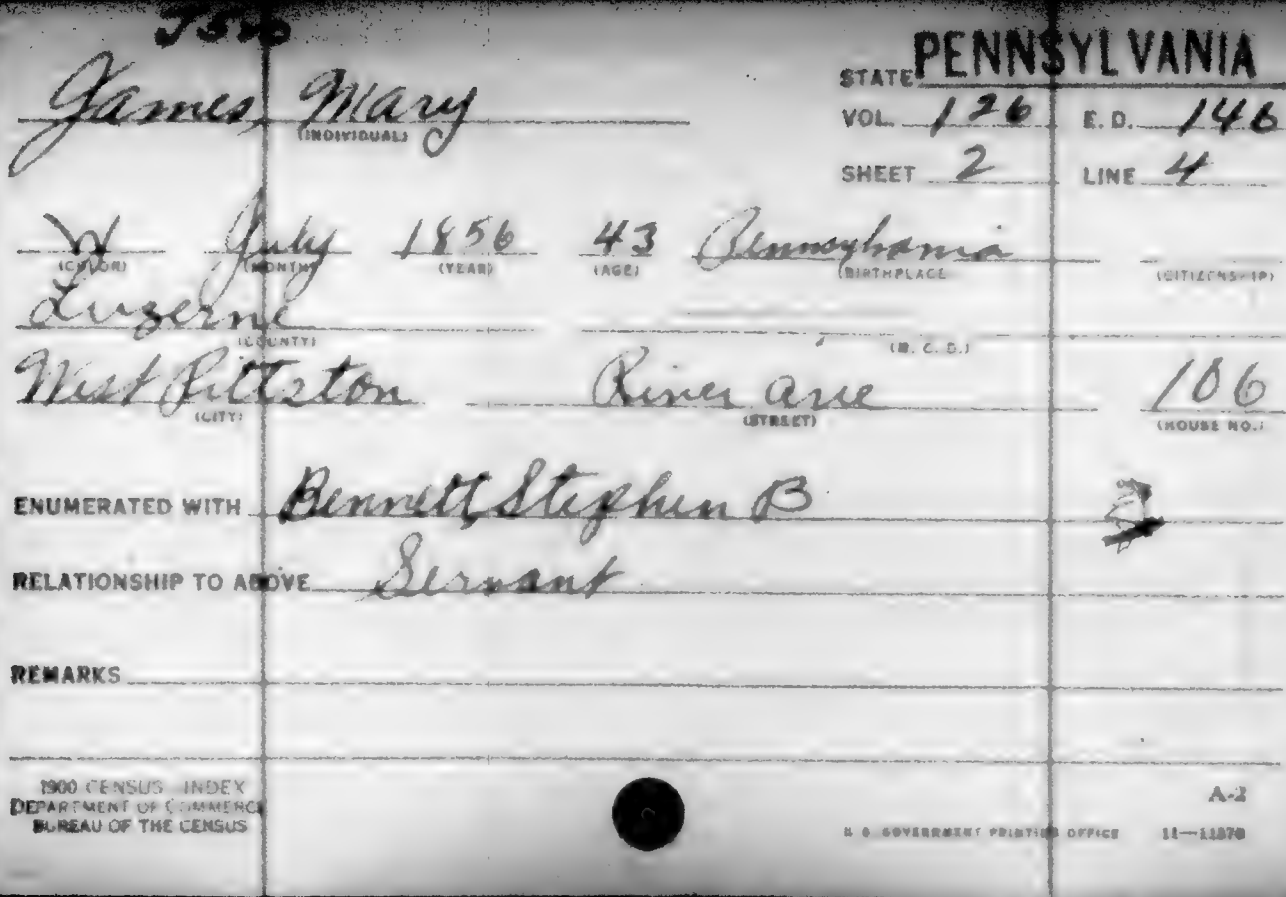 J520
STATE PENNSYLVANIA
James, Mary
(INDIVIDUAL)
VOL. 126 E. D. 146
SHEET 2 LINE 4
W July 1856 43 Pennsylvania
(COLOR) (MONTH) (YEAR) (AGE) (BIRTHPLACE (CITIZENSHIP)
Luzerne
(COUNTY) (M. C. D.)
West Pittston River ave 106
(CITY) (STREET) (HOUSE NO.)
ENUMERATED WITH Bennett, Stephen B
RELATIONSHIP TO ABOVE Servant
REMARKS
1900 CENSUS INDEX
DEPARTMENT OF COMMERCE
BUREAU OF THE CENSUS
A-2
U. S. GOVERNMENT PRINTING OFFICE 11—11870